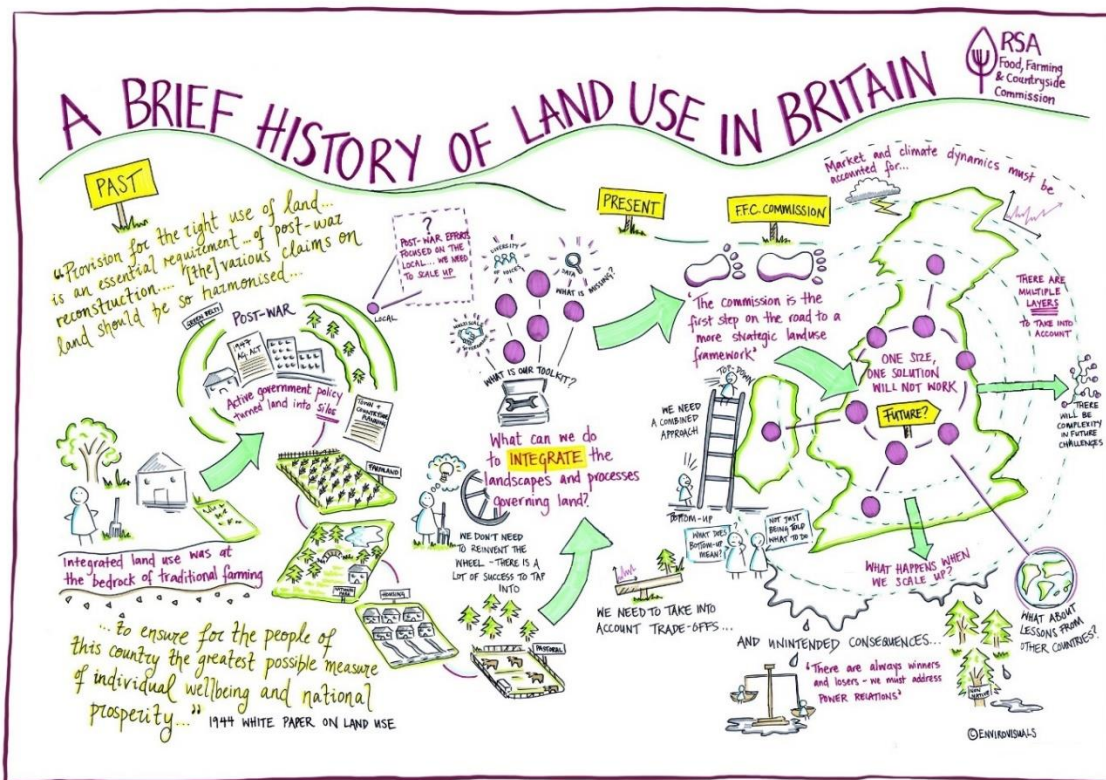 A BRIEF HISTORY OF LAND USE IN BRITAIN
RSA
Food, Farming
& Countryside
Commission
PAST
"Provision for the right use of land...
is an essential requirement... of post-war
reconstruction.... [the] various claims on
land should be so harmonised...
GREEN BELTS
POST-WAR
1947
AG. ACT
Active government policy
turned land into silos
TOWN +
COUNTRYSIDE
PLANNING
Integrated land use was at
the bedrock of traditional farming
FARMLAND
NATIONAL
PARK
HOUSING
PASTORAL
...to ensure for the people of
this country the greatest possible measure
of individual wellbeing and national
prosperity..."
1944 WHITE PAPER ON LAND USE
?
POST-WAR EFFORTS
FOCUSED ON THE
LOCAL... WE NEED
TO SCALE UP
LOCAL
DIVERSITY
OF VOICES
DATA
WHAT IS MISSING?
MULTISCALE
GOVERNANCE
WHAT IS OUR TOOLKIT?
What can we do
to INTEGRATE the
landscapes and processes
governing land?
WE DON'T NEED
TO REINVENT THE
WHEEL - THERE IS A
LOT OF SUCCESS TO TAP
INTO
PRESENT
F.F.C. COMMISSION
'The commission is the
first step on the road to a
more strategic landuse
framework'
TOP-DOWN
WE NEED
A COMBINED
APPROACH
BOTTOM-UP
WHAT DOES
BOTTOM-UP
MEAN?
?
NOT JUST
BEING TOLD
WHAT TO DO
WE NEED TO TAKE INTO
ACCOUNT TRADE-OFFS...
AND UNINTENDED CONSEQUENCES...
'There are always winners
and losers - we must address
POWER RELATIONS'
Market and climate dynamics must be
accounted for...
THERE ARE
MULTIPLE
LAYERS
TO TAKE INTO
ACCOUNT
ONE SIZE,
ONE SOLUTION
WILL NOT WORK
FUTURE?
THERE
WILL BE
COMPLEXITY
IN FUTURE
CHALLENGES
WHAT HAPPENS WHEN
WE SCALE UP?
WHAT ABOUT
LESSONS FROM
OTHER COUNTRIES?
NON
NATIVE
©ENVIROVISUALS